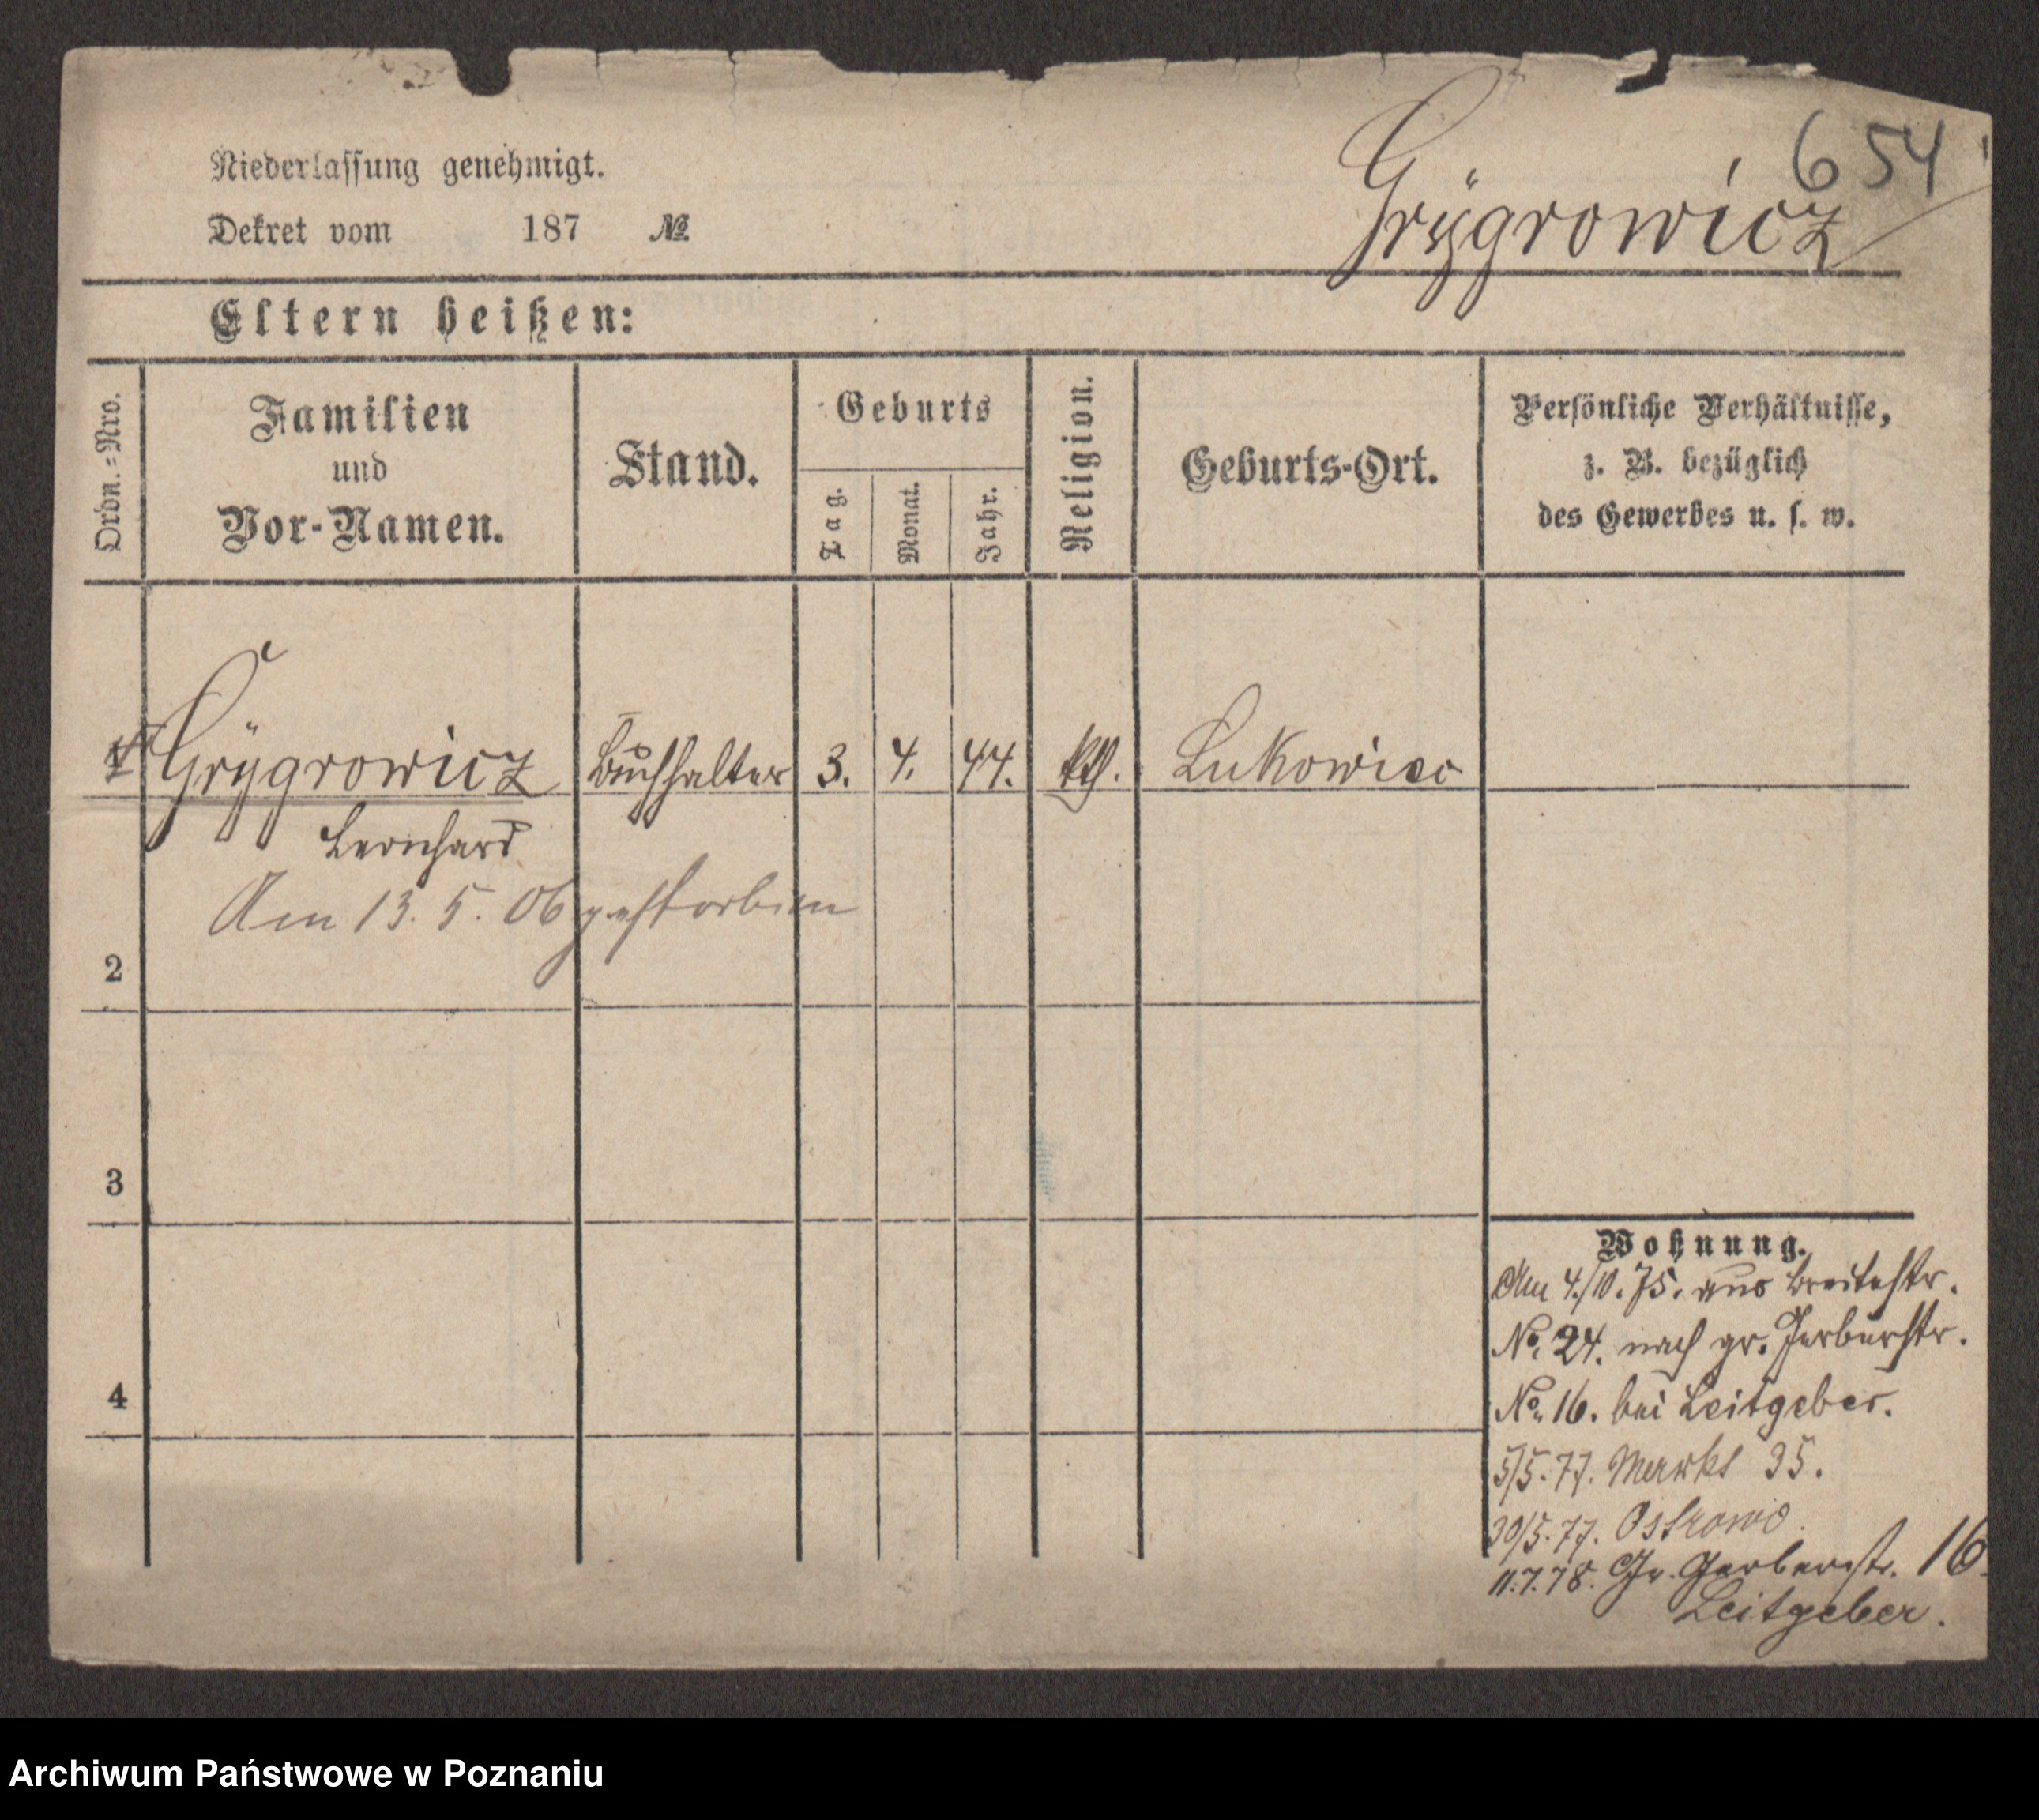 654
Niederlassung genehmigt.
Grÿgrowicz
Dekret vom 187 №
Eltern heißen:
Ordn.=Nro.
Familien
und
Vor-Namen.
Stand.
Geburts
Tag.
Monat.
Jahr.
Religion.
Geburts-Ort.
Persönliche Verhältnisse,
z. B. bezüglich
des Gewerbes u. s. w.
1 Grÿgrowicz Buchhalter 3. 4. 44. kth. Lukowiec
Bernhard
Am 13. 5. 06 gestorben
2
3
4
Wohnung.
Am 4./10.75. aus Breitestr.
No. 24. nach gr. Gerberstr.
No. 16. bei Leitgeber.
5/5.77. Markt 35.
30/5.77. Ostrowo.
11.7.78. Gr. Gerberstr. 16.
Leitgeber.
Archiwum Państwowe w Poznaniu